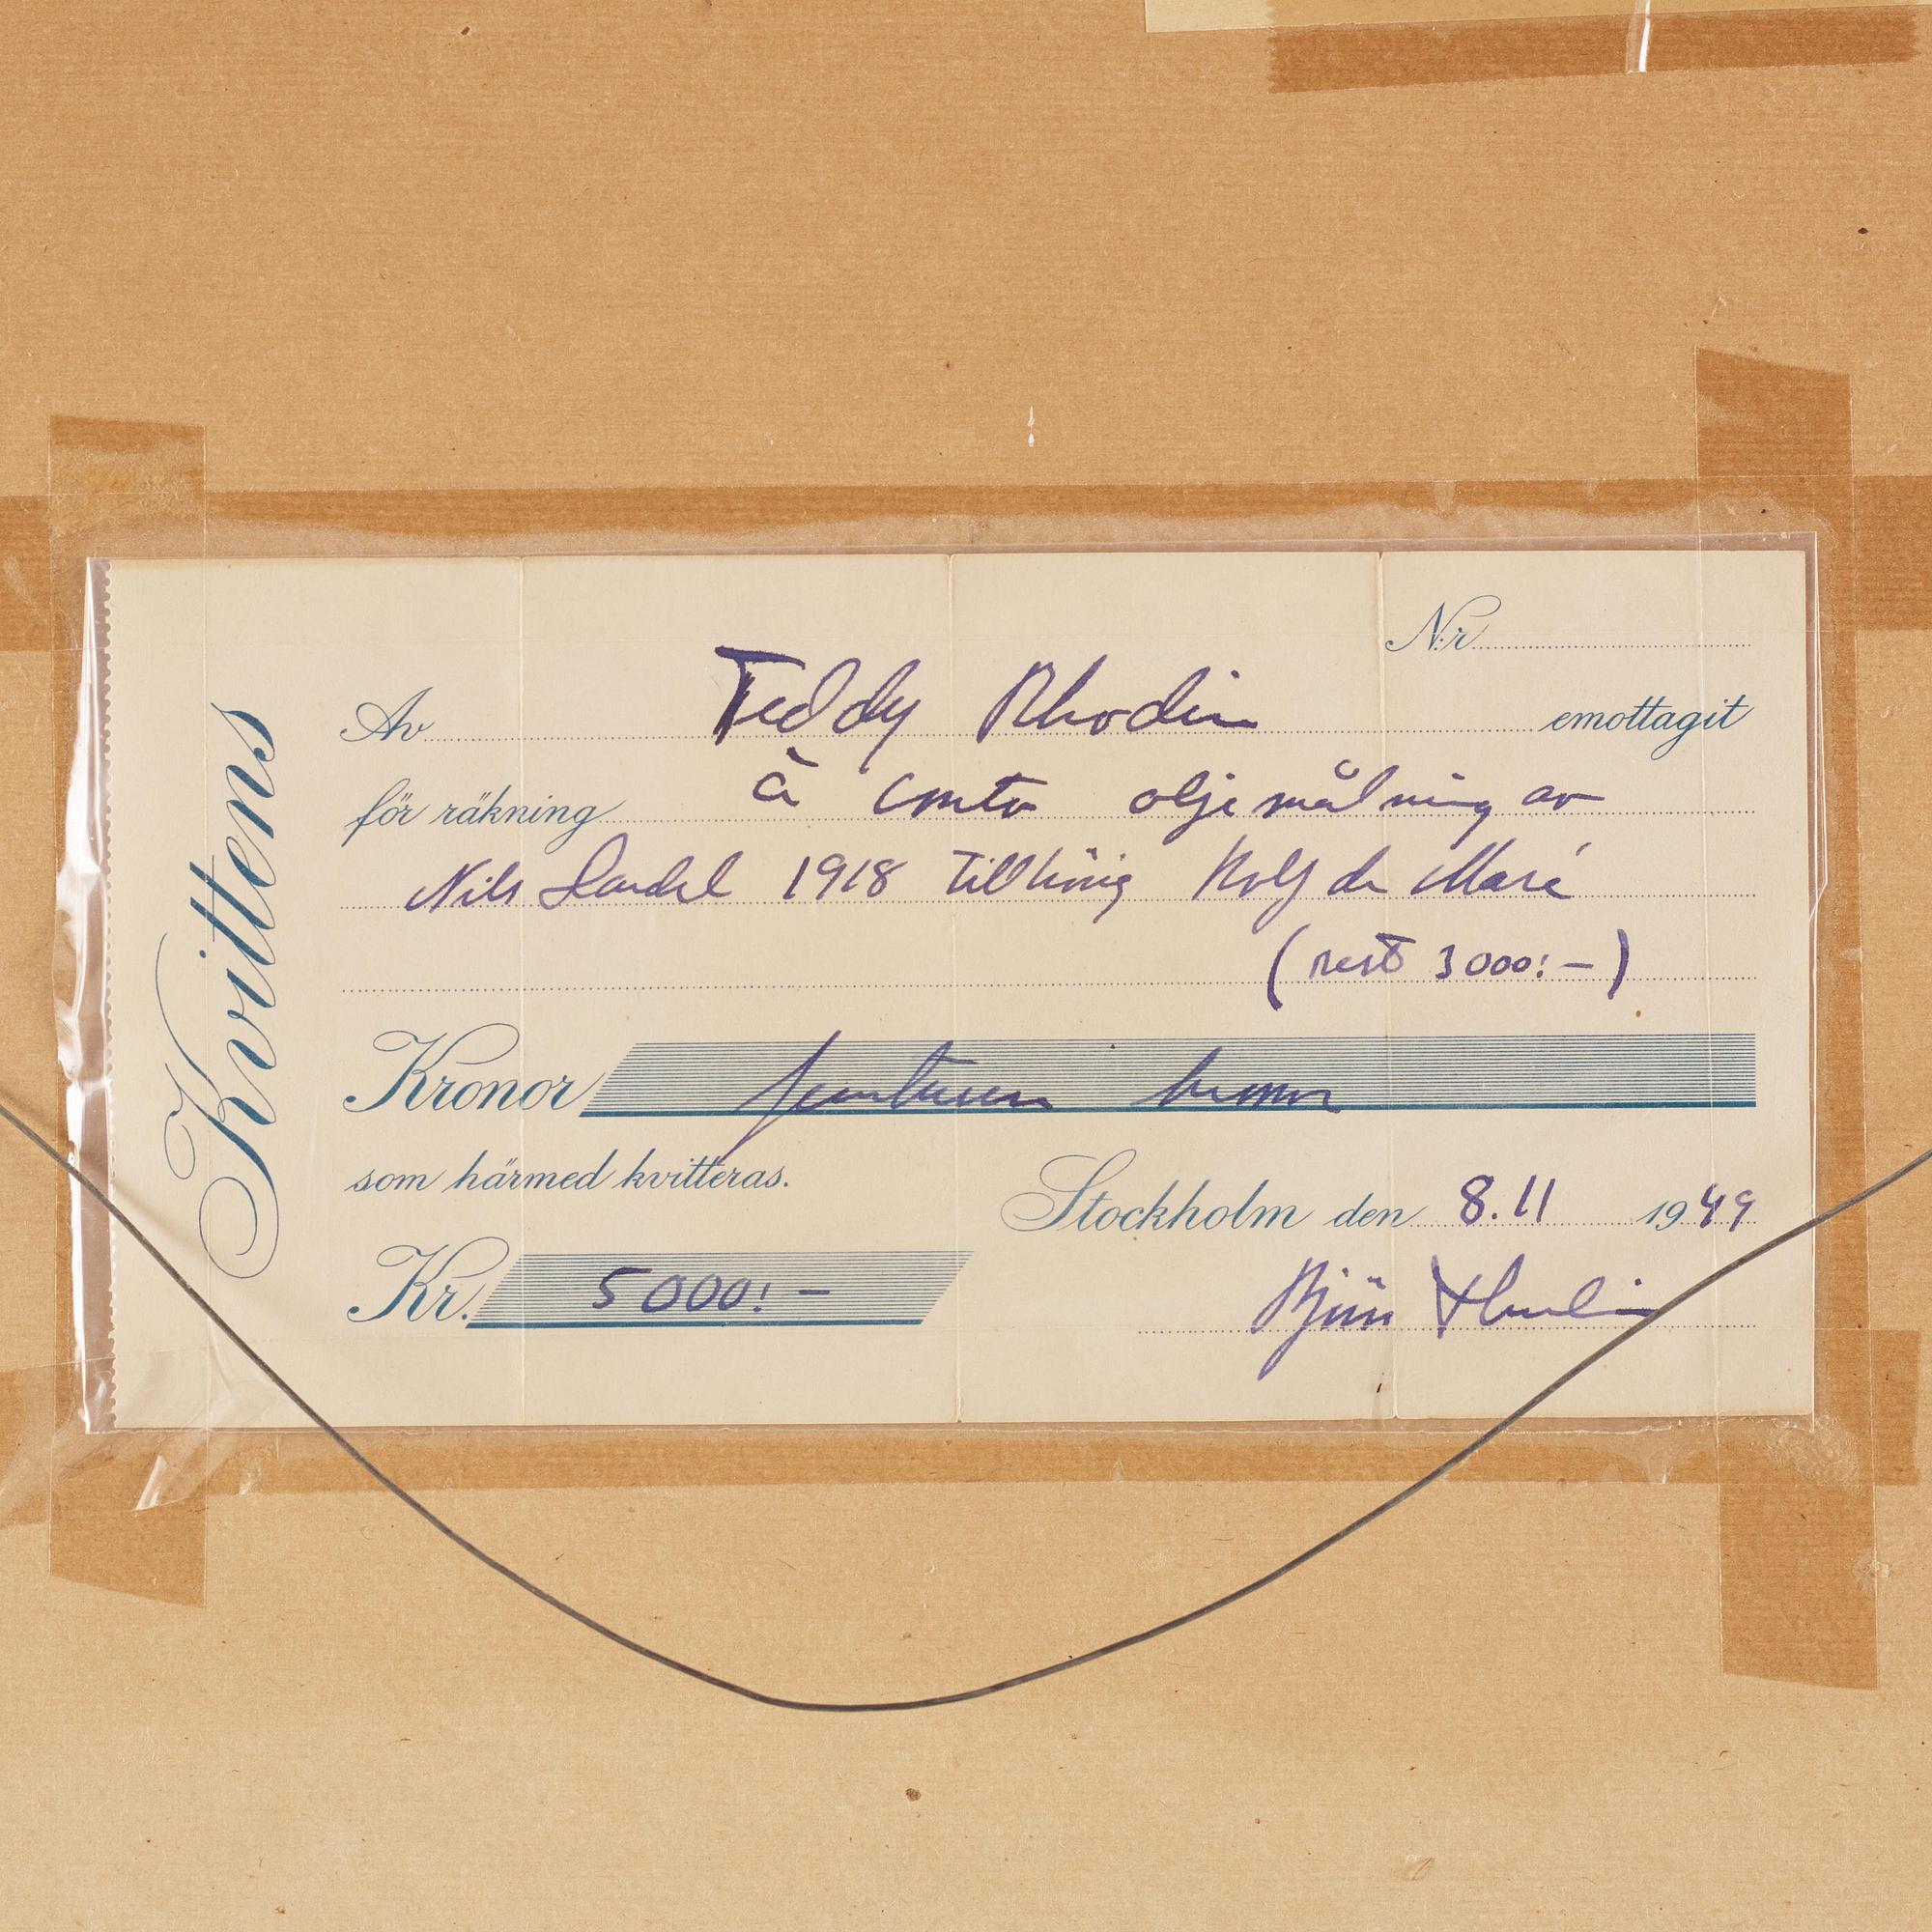 Kvittens
N:r
Av Teddy Rhodin emottagit
för räkning à conto oljemålning av
Nils Dardel 1918 tillhörig Rolf de Maré
(rest 3000:-)
Kronor femtusen kronor
som härmed kvitteras.
Stockholm den 8.11 1949
Kr. 5000:-
Björn